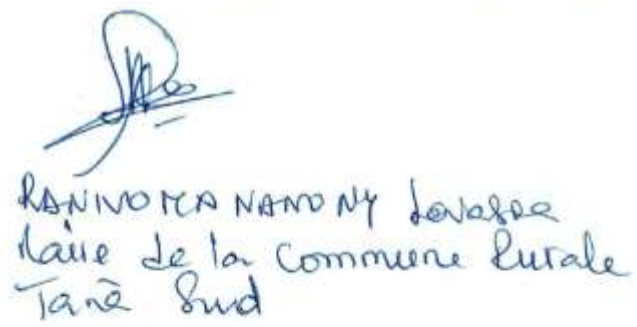 RANIVOMANANONY Lovasoa
Maire de la Commune Rurale
Tanà Sud